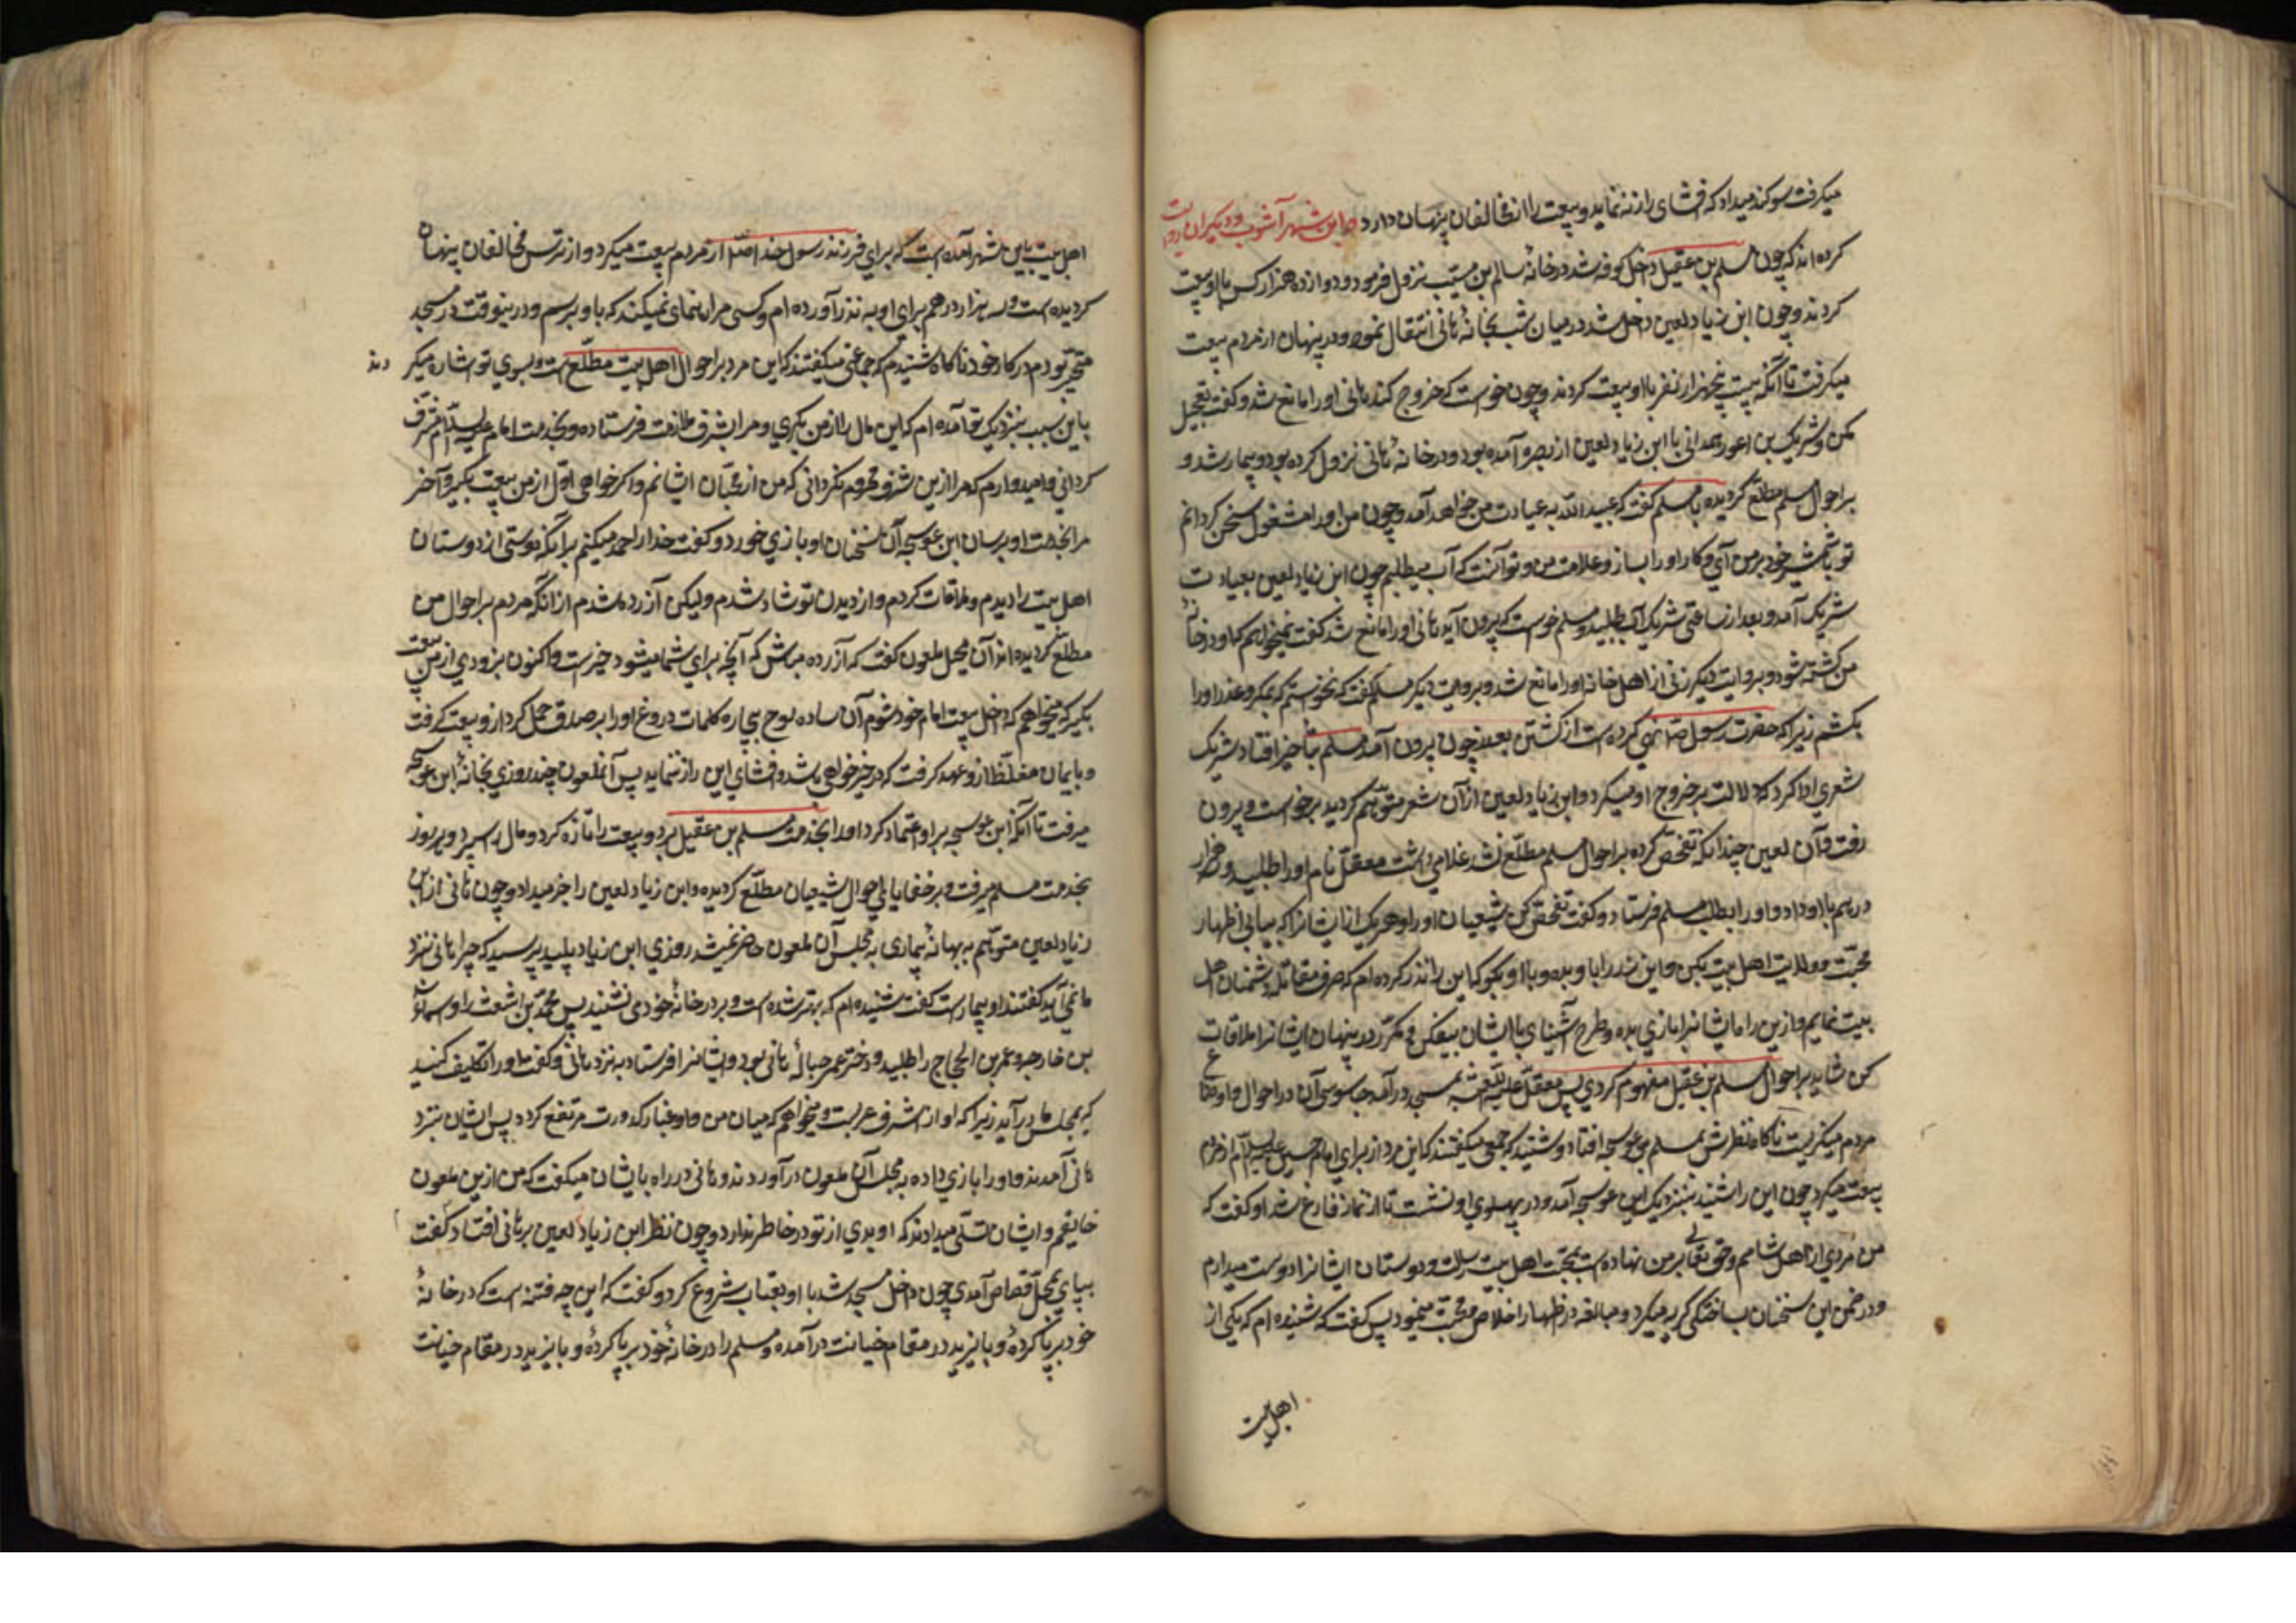 میکرفت سوکند میداد که افشای راز ننماید و بیعت را از مخالفان پنهان دارد و ابن شهر آشوب و دیکران روایت
کرده اند که چون مسلم بن عقیل داخل کوفه شد در خانهٔ سالم بن مسیب نزول فرمود و دوازده هزار کس با او بیعت
کردند و چون ابن زیاد لعین داخل شد در میان شب بخانهٔ هانی انتقال نمود و در پنهان از مردم بیعت
میکرفت تا آنکه بیست پنجهزار نفر با او بیعت کردند و چون خواست که خروج کند هانی او را مانع شد و کفت تعجیل
مکن و شریک بن اعور همدانی با ابن زیاد لعین از بصره آمده بود و در خانهٔ هانی نزول کرده بود و بیمار شد و
بر احوال مسلم مطلع کردیده با مسلم کفت که عبید الله به عیادت من خواهد آمد و چون من او را مشغول سخن کردانم
تو با شمشیر خود بر من آی و کار او را بساز و علامت من و تو آنست که آب میطلبم چون ابن زیاد لعین بعیادت
شریک آمد و بعد از ساعتی شریک آب طلبید و مسلم خواست که بیرون آید هانی او را مانع شد کفت نمیخواهم که او در خانهٔ
من کشته شود و بروایت دیکر زنی از اهل خانه او را مانع شد و بروایت دیکر مسلم کفت که نخواستم که بمکر و عذر او را
بکشم زیرا که حضرت رسول ص نهی کرده است از کشتن بعذر چون بیرون آمدن مسلم بتأخیر افتاد شریک
شعری ادا کرد که دلالت بر خروج او میکرد و ابن زیاد لعین از آن شعر متوهم کردید برخواست و بیرون
رفت و آن لعین چندانکه تفحص کرده بر احوال مسلم مطلع نشد غلامی داشت معقل نام او را طلبید و سه هزار
درهم با او داد و او را بطلب مسلم فرستاد و کفت تفحص کن شیعیان او را و هر یک از ایشانرا که بیابی اظهار
محبت و ولایت اهل بیت بکن و این زر را باو بده و با او بکو که این را نذر کرده ام که صرف مقاتلهٔ دشمنان اهل
بیت نمایم و ازین راه ایشانرا بازی بده و طرح آشنای با ایشان بیفکن و مکرّر در پنهان ایشانرا ملاقات
کن شاید بر احوال مسلم بن عقیل مفهوم کردی پس معقل علیه اللعنه بمسجد درآمد جاسوسی آن در احوال و اوضاع
مردم میکریست ناکاه نظرش بمسلم بن عوسجه افتاد و شنید که جمعی میکفتند که این مرد از برای امام حسین علیه السلام از مردم
بیعت میکرد چون این را شنید بنزدیک ابن عوسجه آمد و در پهلوی او نشست تا از نماز فارغ شد او کفت که
من مردی از اهل شامم و حق تعالی بر من نهاده است محبت اهل بیت رسالت و دوستان ایشانرا دوست میدارم
و در ضمن این سخنان بساختکی کریه میکرد و مبالغه در اظهار اخلاص و محبت مینمود پس کفت که شنیده ام که یکی از
اهل بیت
اهل بیت باین شهر آمده است که برای فرزند رسول خدا ص از مردم بیعت میکرد و از ترس مخالفان پنهان
کردیده است و سه هزار درهم برای او به نذر آورده ام و کسی مرا راهنمای نمیکند که باو برسم و درینوقت در مسجد
متحیر بودم در کار خود ناکاه شنیدم که جماعتی میکفتند که این مرد بر احوال اهل بیت مطلع است و بسوی تو اشاره میکردند
باین سبب بنزدیک تو آمده ام که این مال را از من بکیری و مرا بشرف ملازمت فرستاده و بخدمت امام علیه السلام مشرف
کردانی و امیدوارم که مرا ازین شرف محروم نکردانی که من از محبان ایشانم و اکر خواهی اول از من بیعت بکیر و آخر
مرا بخدمت او برسان ابن عوسجه آن سخنان او بازی خورد و کفت خدا را حمد میکنم بر آنکه دوستی از دوستان
اهل بیت را دیدم و ملاقات کردم و از دیدن تو شاد شدم ولیکن آزرده شدم از آنکه مردم بر احوال من
مطلع کردیده اند آن محیل ملعون کفت که آزرده مباش که آنچه برای شما میشود خیر است و اکنون بزودی از من بیعت
بکیر که میخواهم که داخل بیعت امام خود شوم آن ساده لوح بیچاره کلمات دروغ او را بر صدق حمل کرد از و بیعت کرفت
و بایمان مغلظه از و عهد کرفت که در خیرخواهی باشد و افشای این راز ننماید پس آنملعون چند روزی بخانهٔ ابن عوسجه
میرفت تا آنکه ابن عوسجه بر او اعتماد کرد او را بخدمت مسلم بن عقیل برد و بیعت را تازه کرد و مال را سپرد و هر روز
بخدمت مسلم میرفت و بر خفایای احوال شیعیان مطلع کردیده و ابن زیاد لعین را خبر میداد و چون هانی از ابن
زیاد لعین متوهم به بهانهٔ بیماری به مجلس آن ملعون حاضر نمیشد روزی ابن زیاد پلید پرسید که چرا هانی نزد
ما نمی آید کفتند او بیمار است کفت شنیده ام که بهتر شده است و بر در خانهٔ خود می نشیند پس محمد بن اشعث را و اسماء
بن خارجه و عمر بن الحجاج را طلبید و دختر عمر حبالهٔ هانی بود و ایشانرا فرستاد به نزد هانی و کفت او را تکلیف کنید
که بمجلس ما درآید زیرا که او از اشرف عربست و میخواهم که میان من و او غبار کدورت مرتفع کردد پس ایشان بنزد
هانی آمدند و او را بازی داده به مجلس آن ملعون درآوردند و هانی در راه بایشان میکفت که من ازین ملعون
خایفم و ایشان تسلی میدادند که او بدی از تو در خاطر ندارد و چون نظر ابن زیاد لعین بر هانی افتاد کفت
بپای بمحل قصاص آمدی چون داخل مسجد شد با او بعتاب شروع کرد و کفت که این چه فتنه است که در خانهٔ
خود برپا کردهٔ و با یزید در مقام خیانت درآمده و مسلم را در خانهٔ خود برپا کردهٔ و با یزید در مقام خیانت